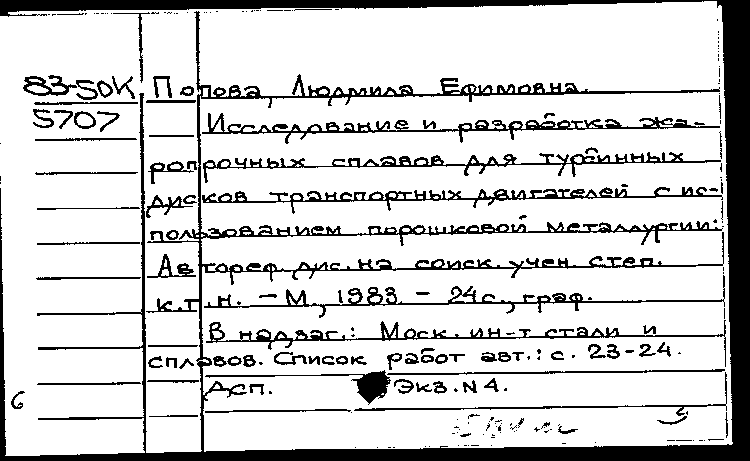 83-50К Попова, Людмила Ефимовна.
5707 Исследование и разработка жа-
ропрочных сплавов для турбинных
дисков транспортных двигателей с ис-
пользованием порошковой металлургии:
Автореф. дис. на соиск. учен. степ.
к.т.н. - М., 1983. - 24с., граф.
В надзаг.: Моск. ин-т стали и
сплавов. Список работ авт.: с. 23-24.
Дсп. Экз. N4.
6